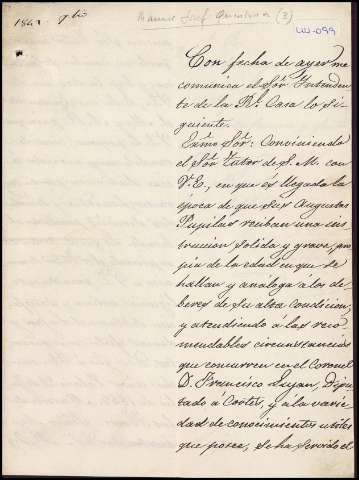 1841
Manuel José Quintana (3)
LW-099
Con fecha de ayer me
comunica el Sõr Intenden
te de la Rˡ. Casa lo si-
guiente.
Exm̃o Sõr: Conviniendo
el Sõr Tutor de S. M. con
V. E., en que és llegada la
época de que sus Augustas
Pupilas reciban una ins
truccion solida y grave, pro
pia de la edad en que se
hallan y análoga á los de
beres de su alta condicion,
y atendiendo á las reco-
mendables circunstancias
que concurren en el Coronel
D. Francisco Lujan, Dipu
tado á Cortes, y á la varie
dad de conocimientos utiles
que posee, se ha servido el